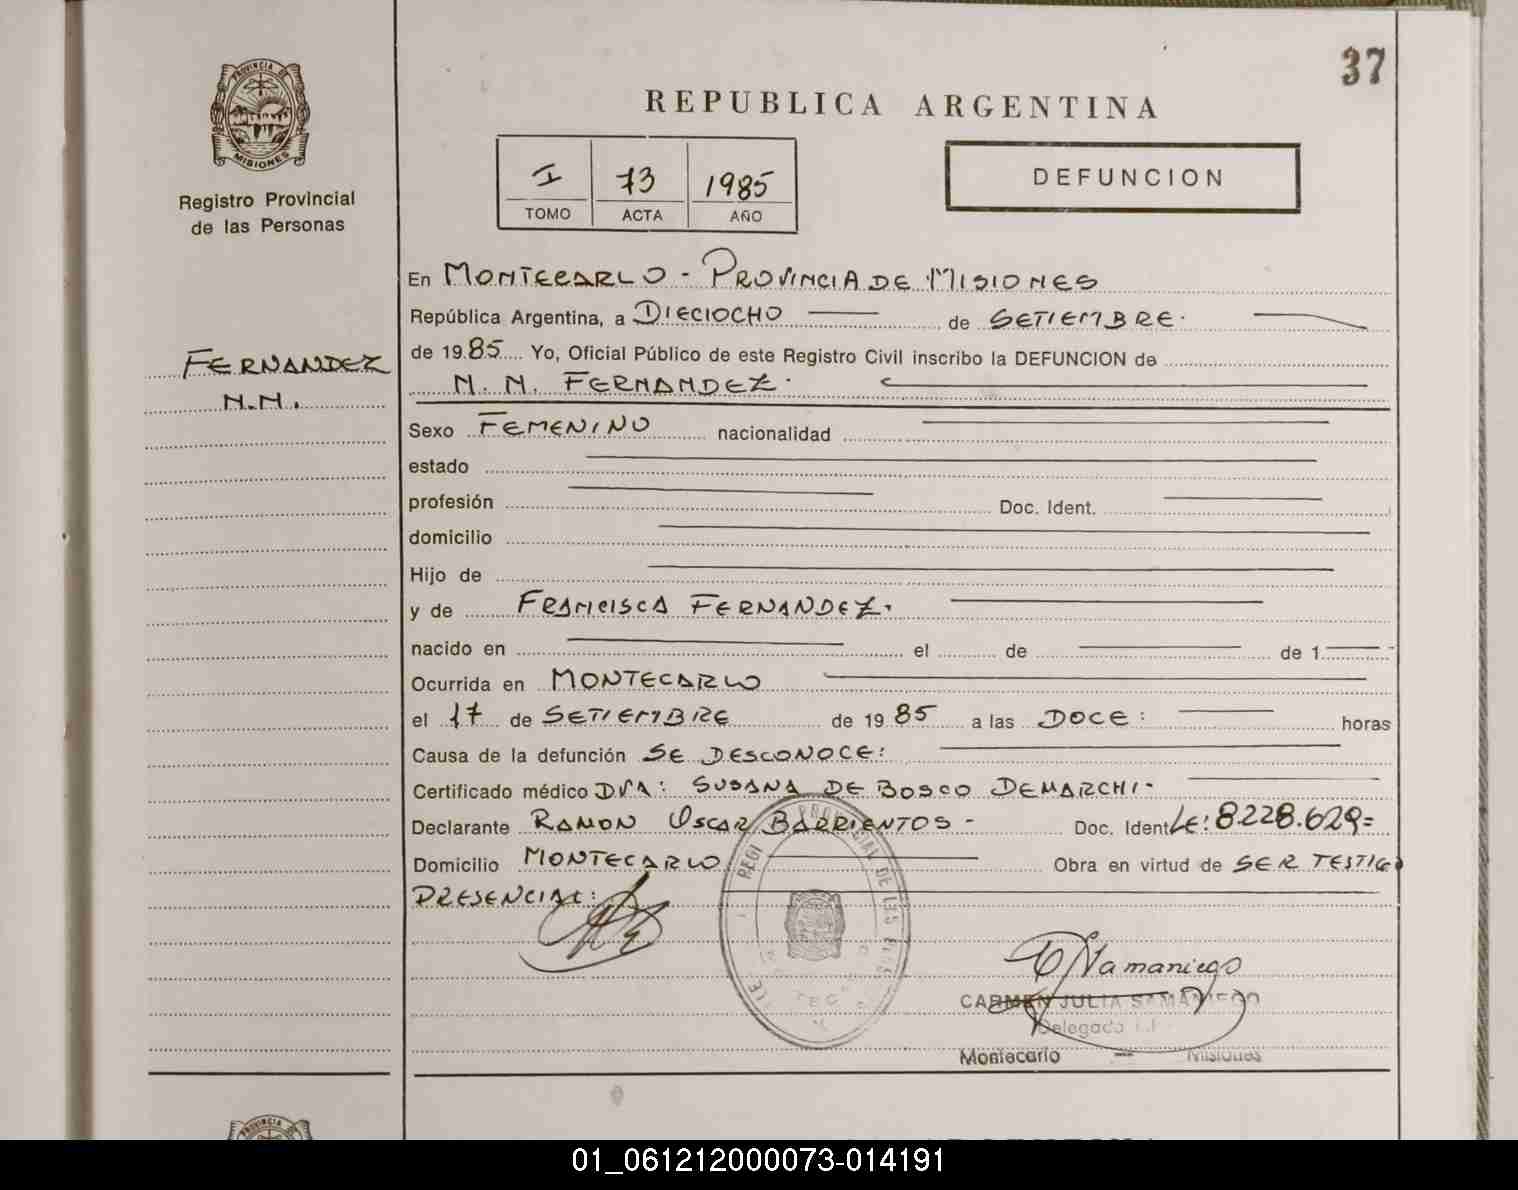 37
PROVINCIA DE
MISIONES
Registro Provincial
de las Personas
REPUBLICA ARGENTINA
I 73 1985
TOMO ACTA AÑO
DEFUNCION
En MONTECARLO - PROVINCIA DE MISIONES
República Argentina, a DIECIOCHO de SETIEMBRE.
de 1985 Yo, Oficial Público de este Registro Civil inscribo la DEFUNCION de
N. N. FERNANDEZ.
FERNANDEZ
N.N.
Sexo FEMENINO nacionalidad
estado
profesión Doc. Ident.
domicilio
Hijo de
y de FRANCISCA FERNANDEZ.
nacido en el de de 1
Ocurrida en MONTECARLO
el 17 de SETIEMBRE de 1985 a las DOCE: horas
Causa de la defunción SE DESCONOCE:
Certificado médico DRA: SUSANA DE BOSCO DEMARCHI-
Declarante RAMON OSCAR BARRIENTOS - Doc. Ident LE: 8.228.629=
Domicilio MONTECARLO Obra en virtud de SER TESTIGO
PRESENCIAL:
CSamaniego
CARMEN JULIA SAMANIEGO
Delegada
Montecarlo — Misiones
PROVINCIA DE
01_061212000073-014191